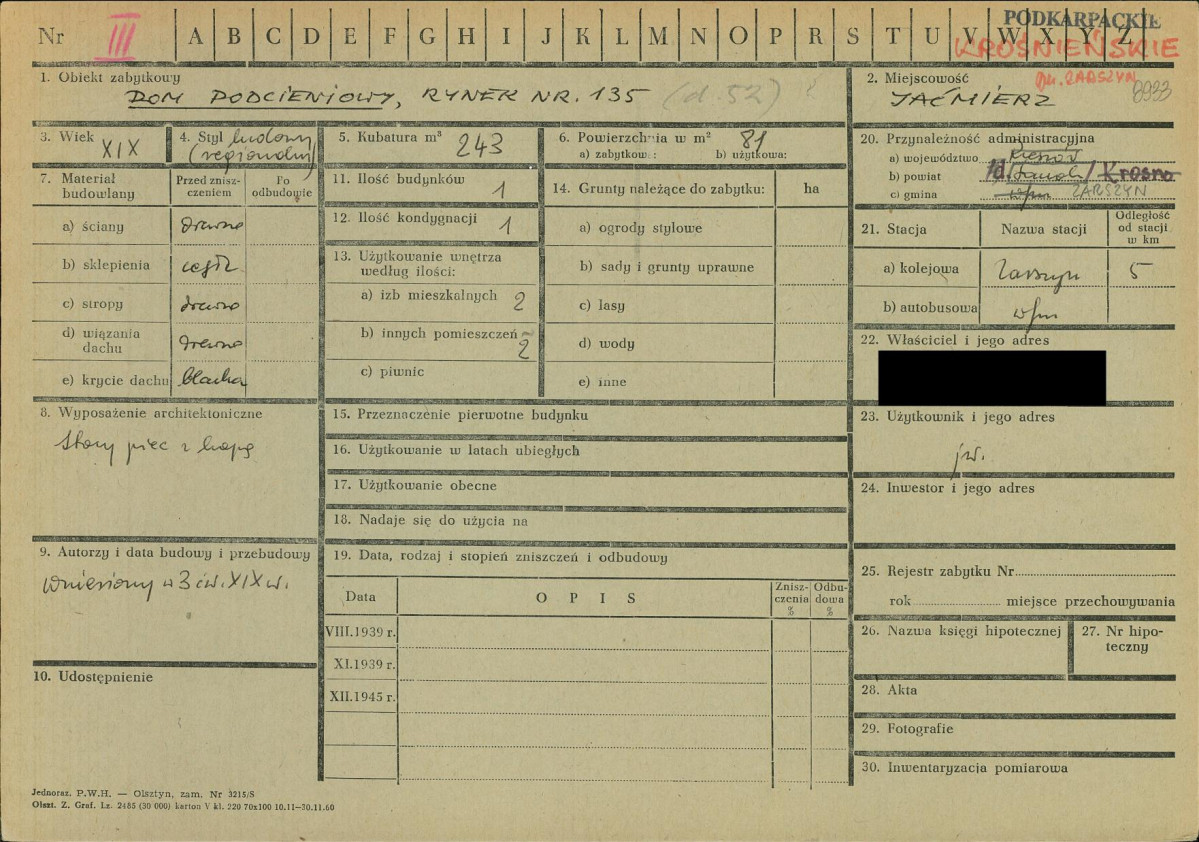 Nr III A B C D E F G H I J K L M N O P R S T U V W X Y Z
PODKARPACKIE
KROŚNIEŃSKIE
gm. ZARSZYN
8933
1. Obiekt zabytkowy
DOM PODCIENIOWY, RYNEK NR. 135 (d. 52) ?
2. Miejscowość
JAĆMIERZ
3. Wiek
XIX
4. Styl ludowy
(regionalny)
5. Kubatura m³
243
6. Powierzchnia w m² 81
a) zabytkow.: b) użytkowa:
7. Materiał budowlany
Przed zniszczeniem
Po odbudowie
a) ściany drewno
b) sklepienia cegła
c) stropy drewno
d) wiązania dachu drewno
e) krycie dachu blacha
8. Wyposażenie architektoniczne
Stary piec z kapą
9. Autorzy i data budowy i przebudowy
Wniesiony w 3 ćw. XIX w.
10. Udostępnienie
11. Ilość budynków 1
12. Ilość kondygnacji 1
13. Użytkowanie wnętrza
według ilości:
a) izb mieszkalnych 2
b) innych pomieszczeń 2
c) piwnic
14. Grunty należące do zabytku: ha
a) ogrody stylowe
b) sady i grunty uprawne
c) lasy
d) wody
e) inne
15. Przeznaczenie pierwotne budynku
16. Użytkowanie w latach ubiegłych
17. Użytkowanie obecne
18. Nadaje się do użycia na
19. Data, rodzaj i stopień zniszczeń i odbudowy
Data
O P I S
Zniszczenia %
Odbudowa %
VIII.1939 r.
XI.1939 r.
XII.1945 r.
20. Przynależność administracyjna
a) województwo Rzeszów
b) powiat /d. Sanok/ Krosno
c) gmina w/m ZARSZYN
21. Stacja
Nazwa stacji
Odległość
od stacji
w km
a) kolejowa Zarszyn 5
b) autobusowa w/m
22. Właściciel i jego adres
23. Użytkownik i jego adres
jw.
24. Inwestor i jego adres
25. Rejestr zabytku Nr
rok miejsce przechowywania
26. Nazwa księgi hipotecznej
27. Nr hipoteczny
28. Akta
29. Fotografie
30. Inwentaryzacja pomiarowa
Jednoraz. P.W.H. — Olsztyn, zam. Nr 3215/S
Olszt. Z. Graf. Lz. 2485 (30 000) karton V kl. 220 70x100 10.11—30.11.60